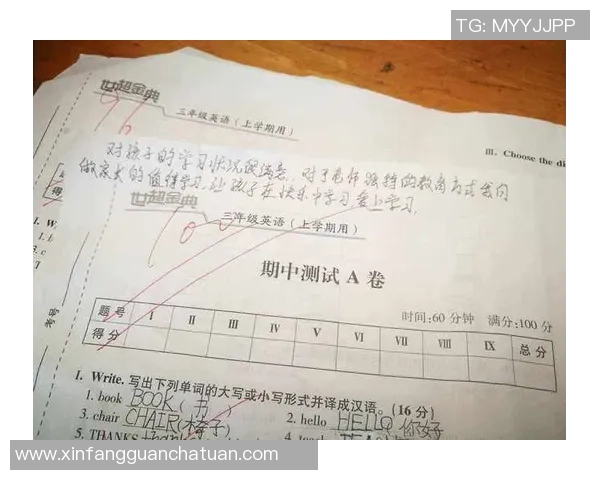 TG: MYYJJPP
世超金典
96
三年级英语(上学期用)
III. Choose the di
对孩子的学习状况很满意,对于老师独特的教育方式我们
做家长的值得学习,让孩子在快乐中学习,爱上学习。
世超金典
100
三年级英语(上学期用)
期中测试 A 卷
时间:60 分钟 满分:100 分
题 号 I II III IV V VI VII VIII IX 总 分
得 分
得
I. W
1. b
3. c
考号:
I. Write. 写出下列单词的大写或小写形式并译成汉语。(16 分)
1. book BOOK(书)
2. hello HELLO 你好
3. chair CHAIR(椅子)
5. THANKS
www.xinfangguanchatuan.com